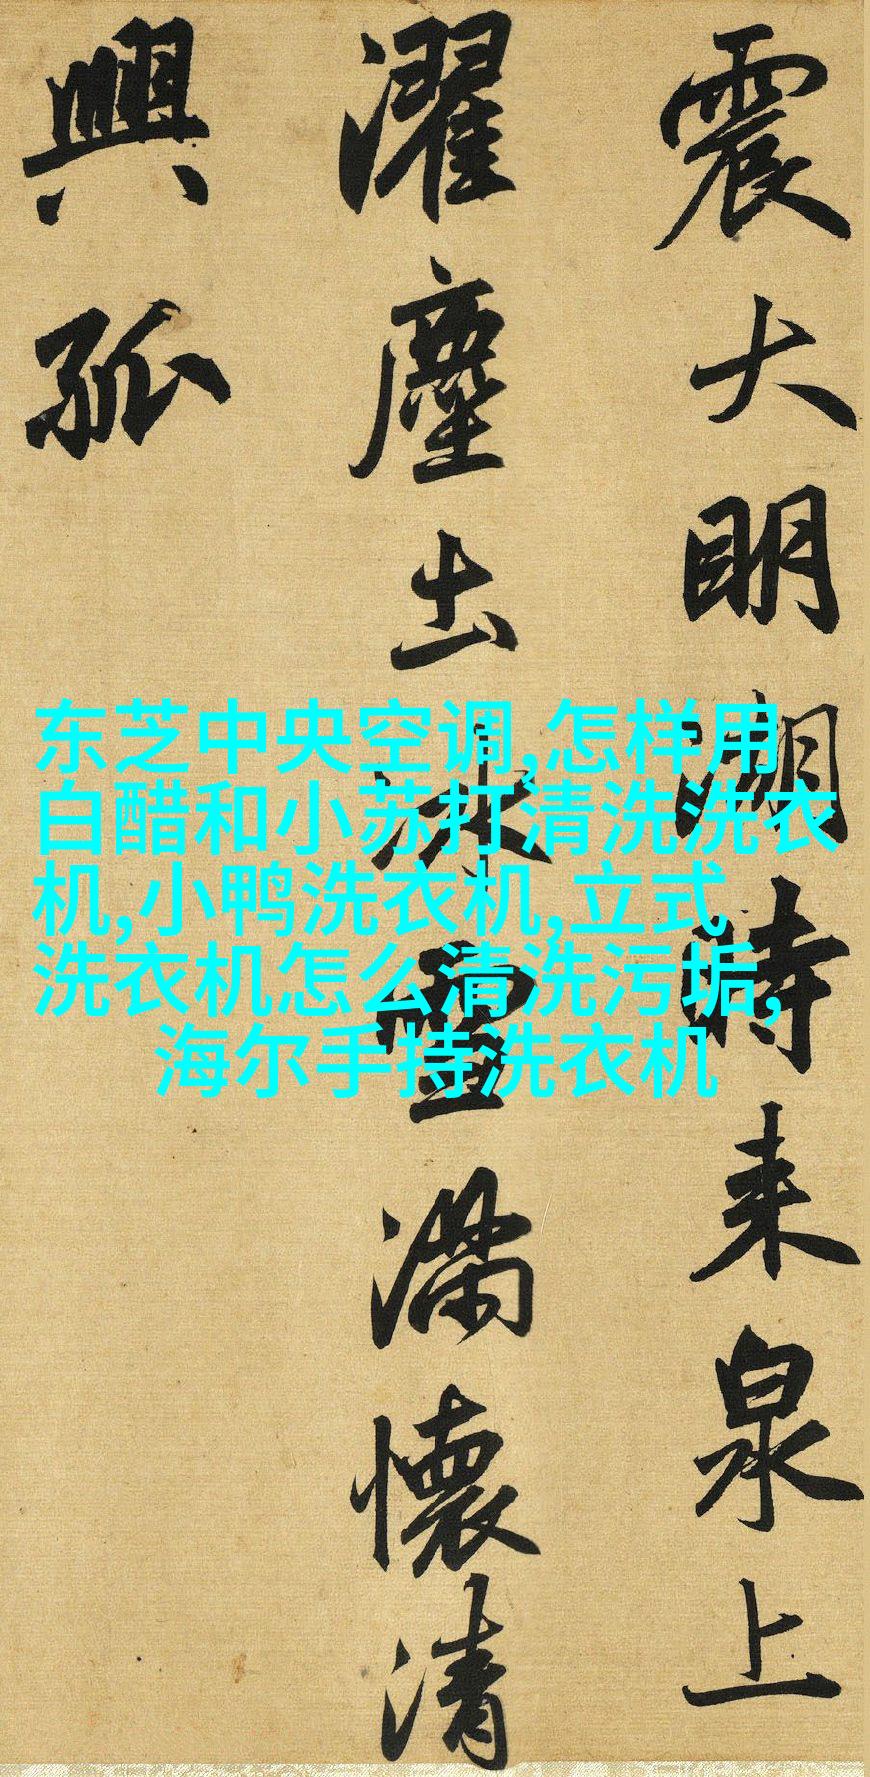 震大明湖時来泉上
濯塵土冰雪满懷清
興孤
东芝中央空调,怎样用
白醋和小苏打清洗洗衣
机,小鸭洗衣机,立式
洗衣机怎么清洗污垢,
海尔手持洗衣机